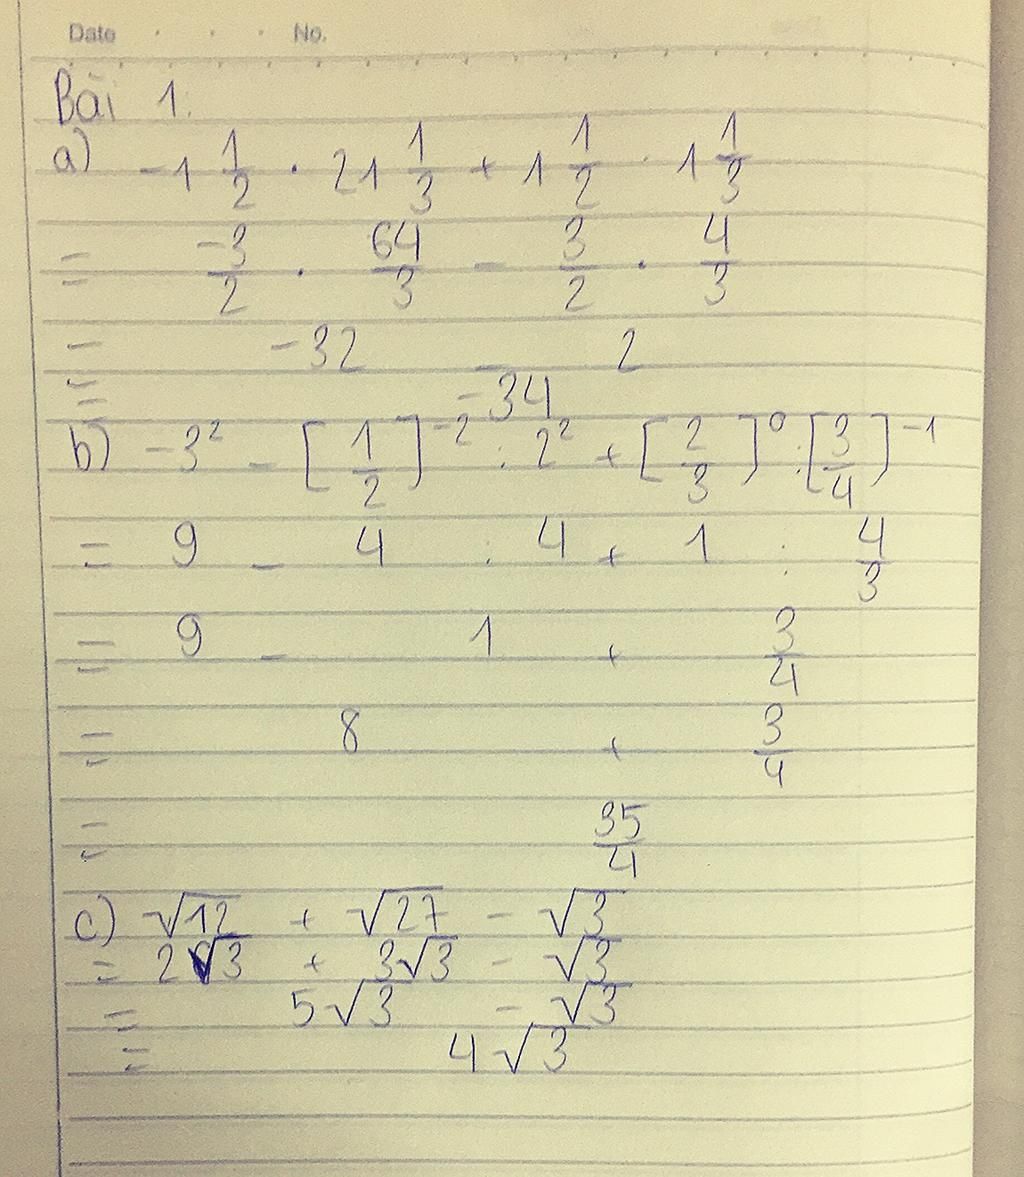 Date . . . No.
Bài 1:
a) -1 1/2 . 21 1/3 + 1 1/2 . 1 1/3
= -3/2 . 64/3 - 3/2 . 4/3
= -32 - 2
= -34
b) -3² - [1/2]⁻² : 2² + [2/3]⁰ : [3/4]⁻¹
= 9 - 4 : 4 + 1 : 4/3
= 9 - 1 + 3/4
= 8 + 3/4
= 35/4
c) √12 + √27 - √3
= 2√3 + 3√3 - √3
= 5√3 - √3
= 4√3